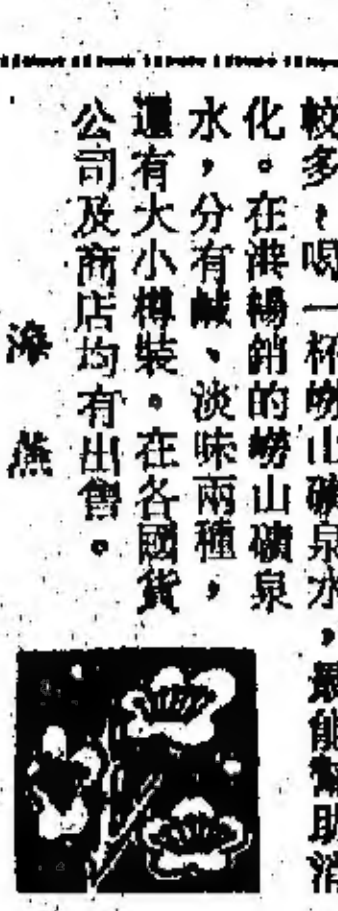 較多，喝一杯嶗山礦泉水，最能幫助消
化。在港暢銷的嶗山礦泉
水，分有鹹、淡味兩種，
還有大小樽裝。在各國貨
公司及商店均有出售。
海燕